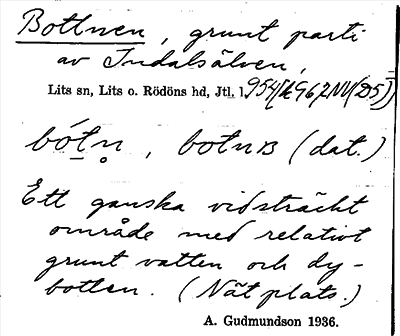 Bottnen, grunt parti
av Indalsälven,
Lits sn, Lits o. Rödöns hd, Jtl.
bótn̥, botnʙ (dat.)
Ett ganska vidsträckt
område med relativt
grunt vatten och dy-
botten. (Nätplats.)
A. Gudmundson 1936.